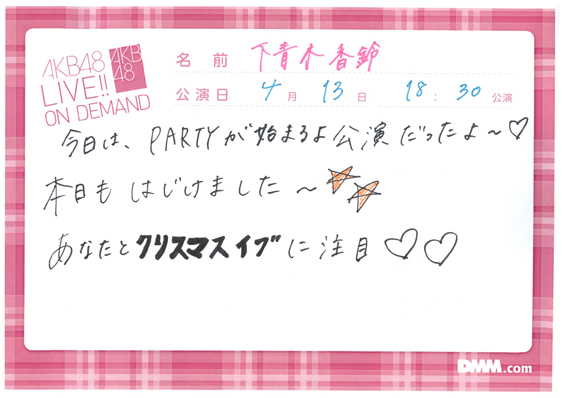 AKB48
LIVE!!
ON DEMAND
AKB
48
名前 下青木香鈴
公演日 4月13日 18:30公演
今日は、PARTYが始まるよ公演だったよ~♡
本日もはじけました~☆☆
あなたとクリスマスイブに注目♡♡
DMM.com